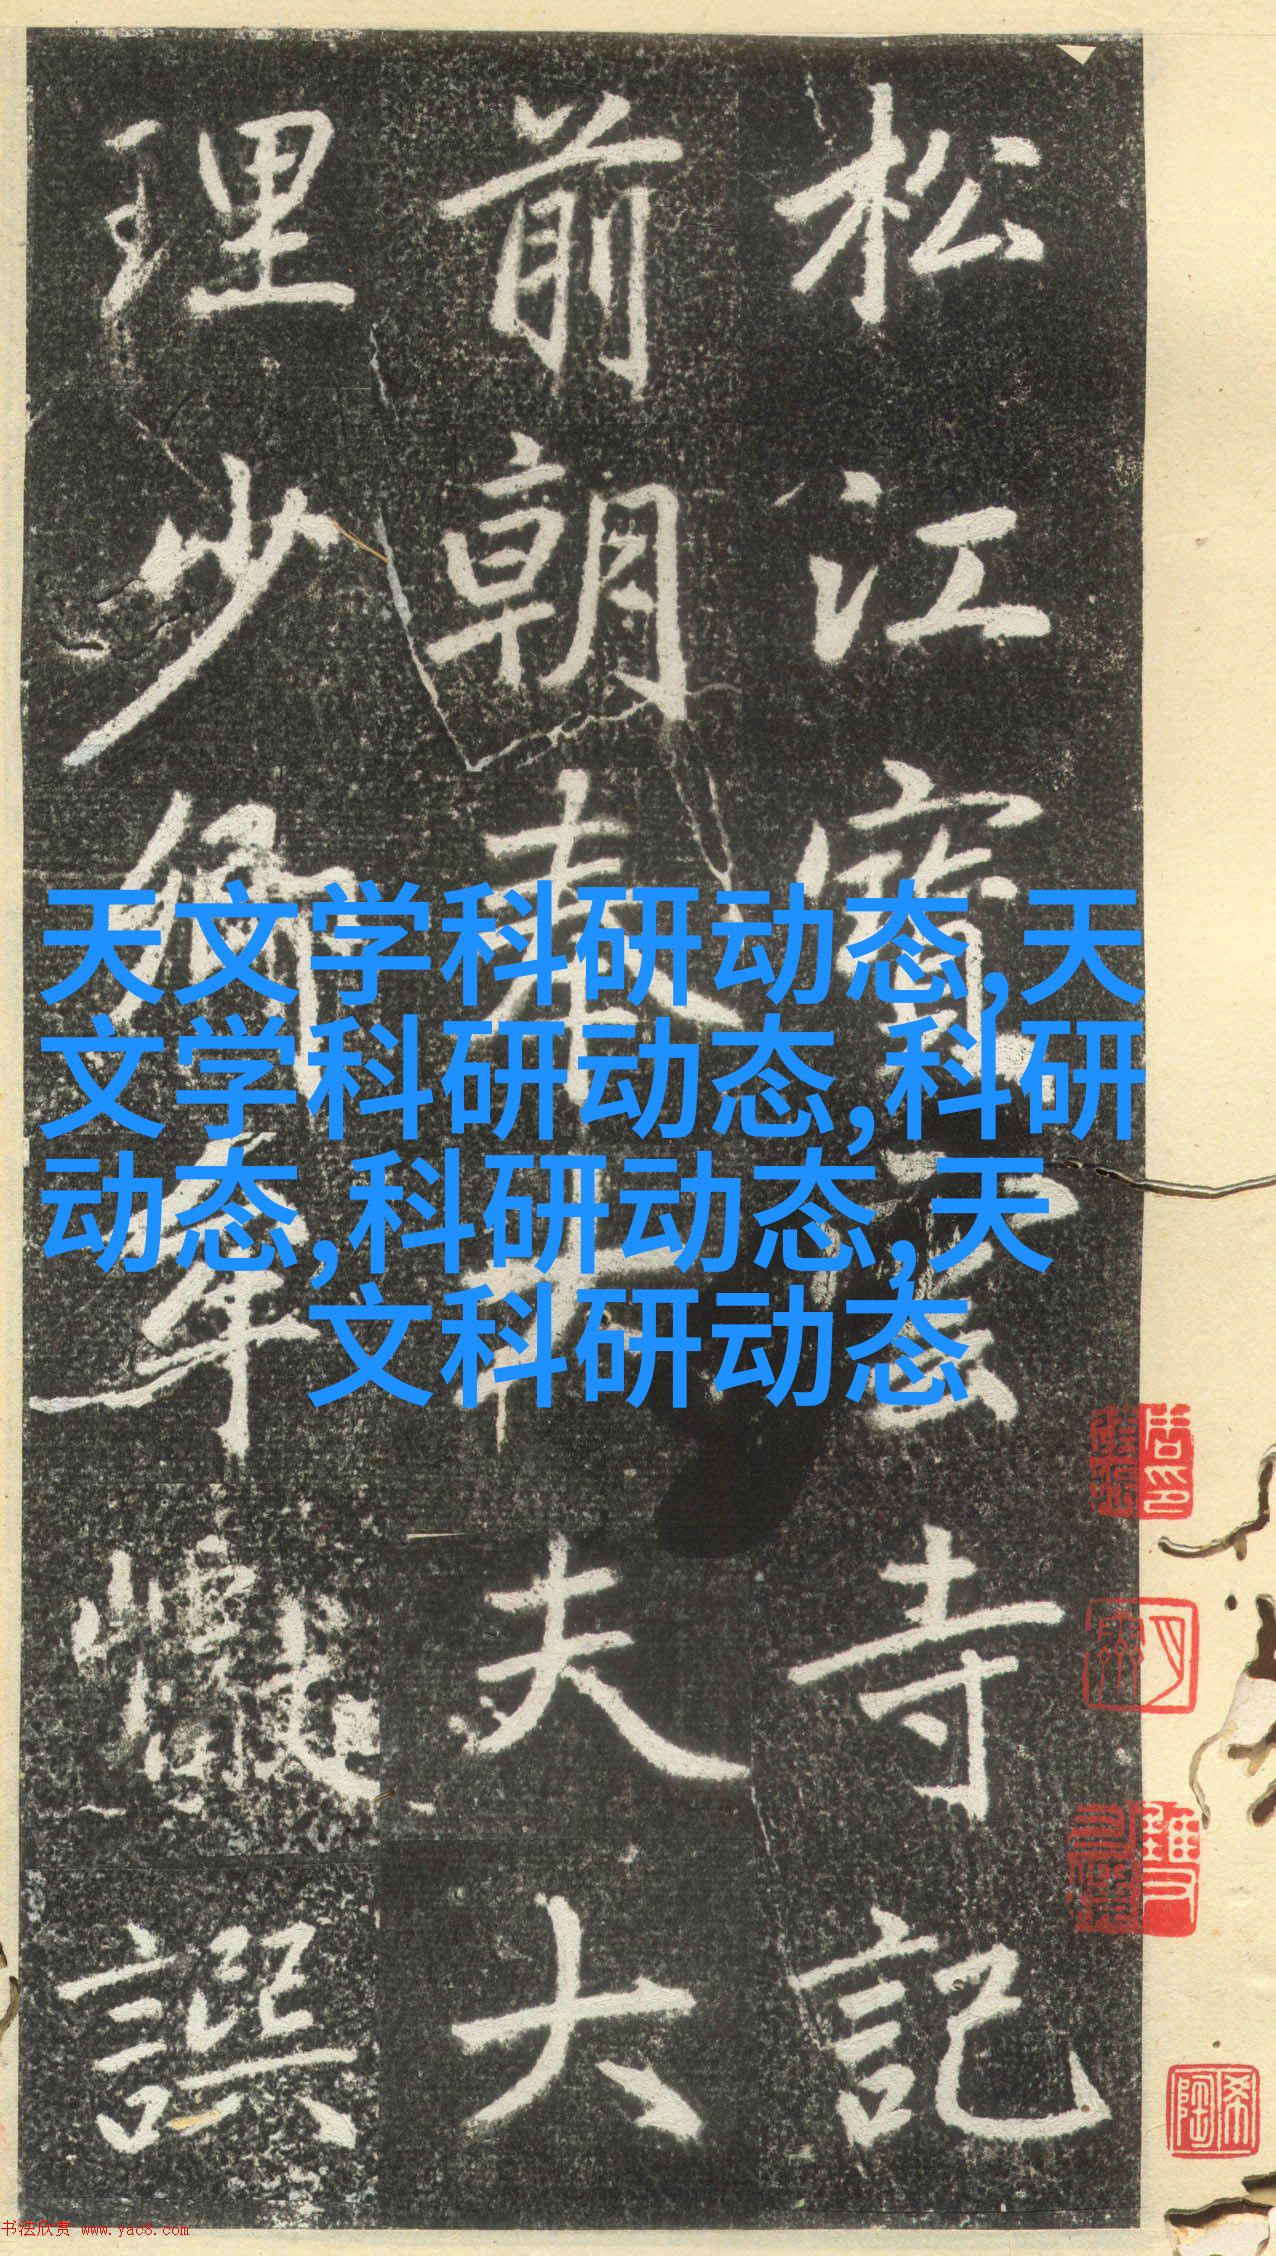 松江寳雲寺記
前朝奉大夫大
理少卿牟巘譔
天文学科研动态,天
文学科研动态,科研
动态,科研动态,天
文科研动态
希陶
书法欣赏 www.yac8.com